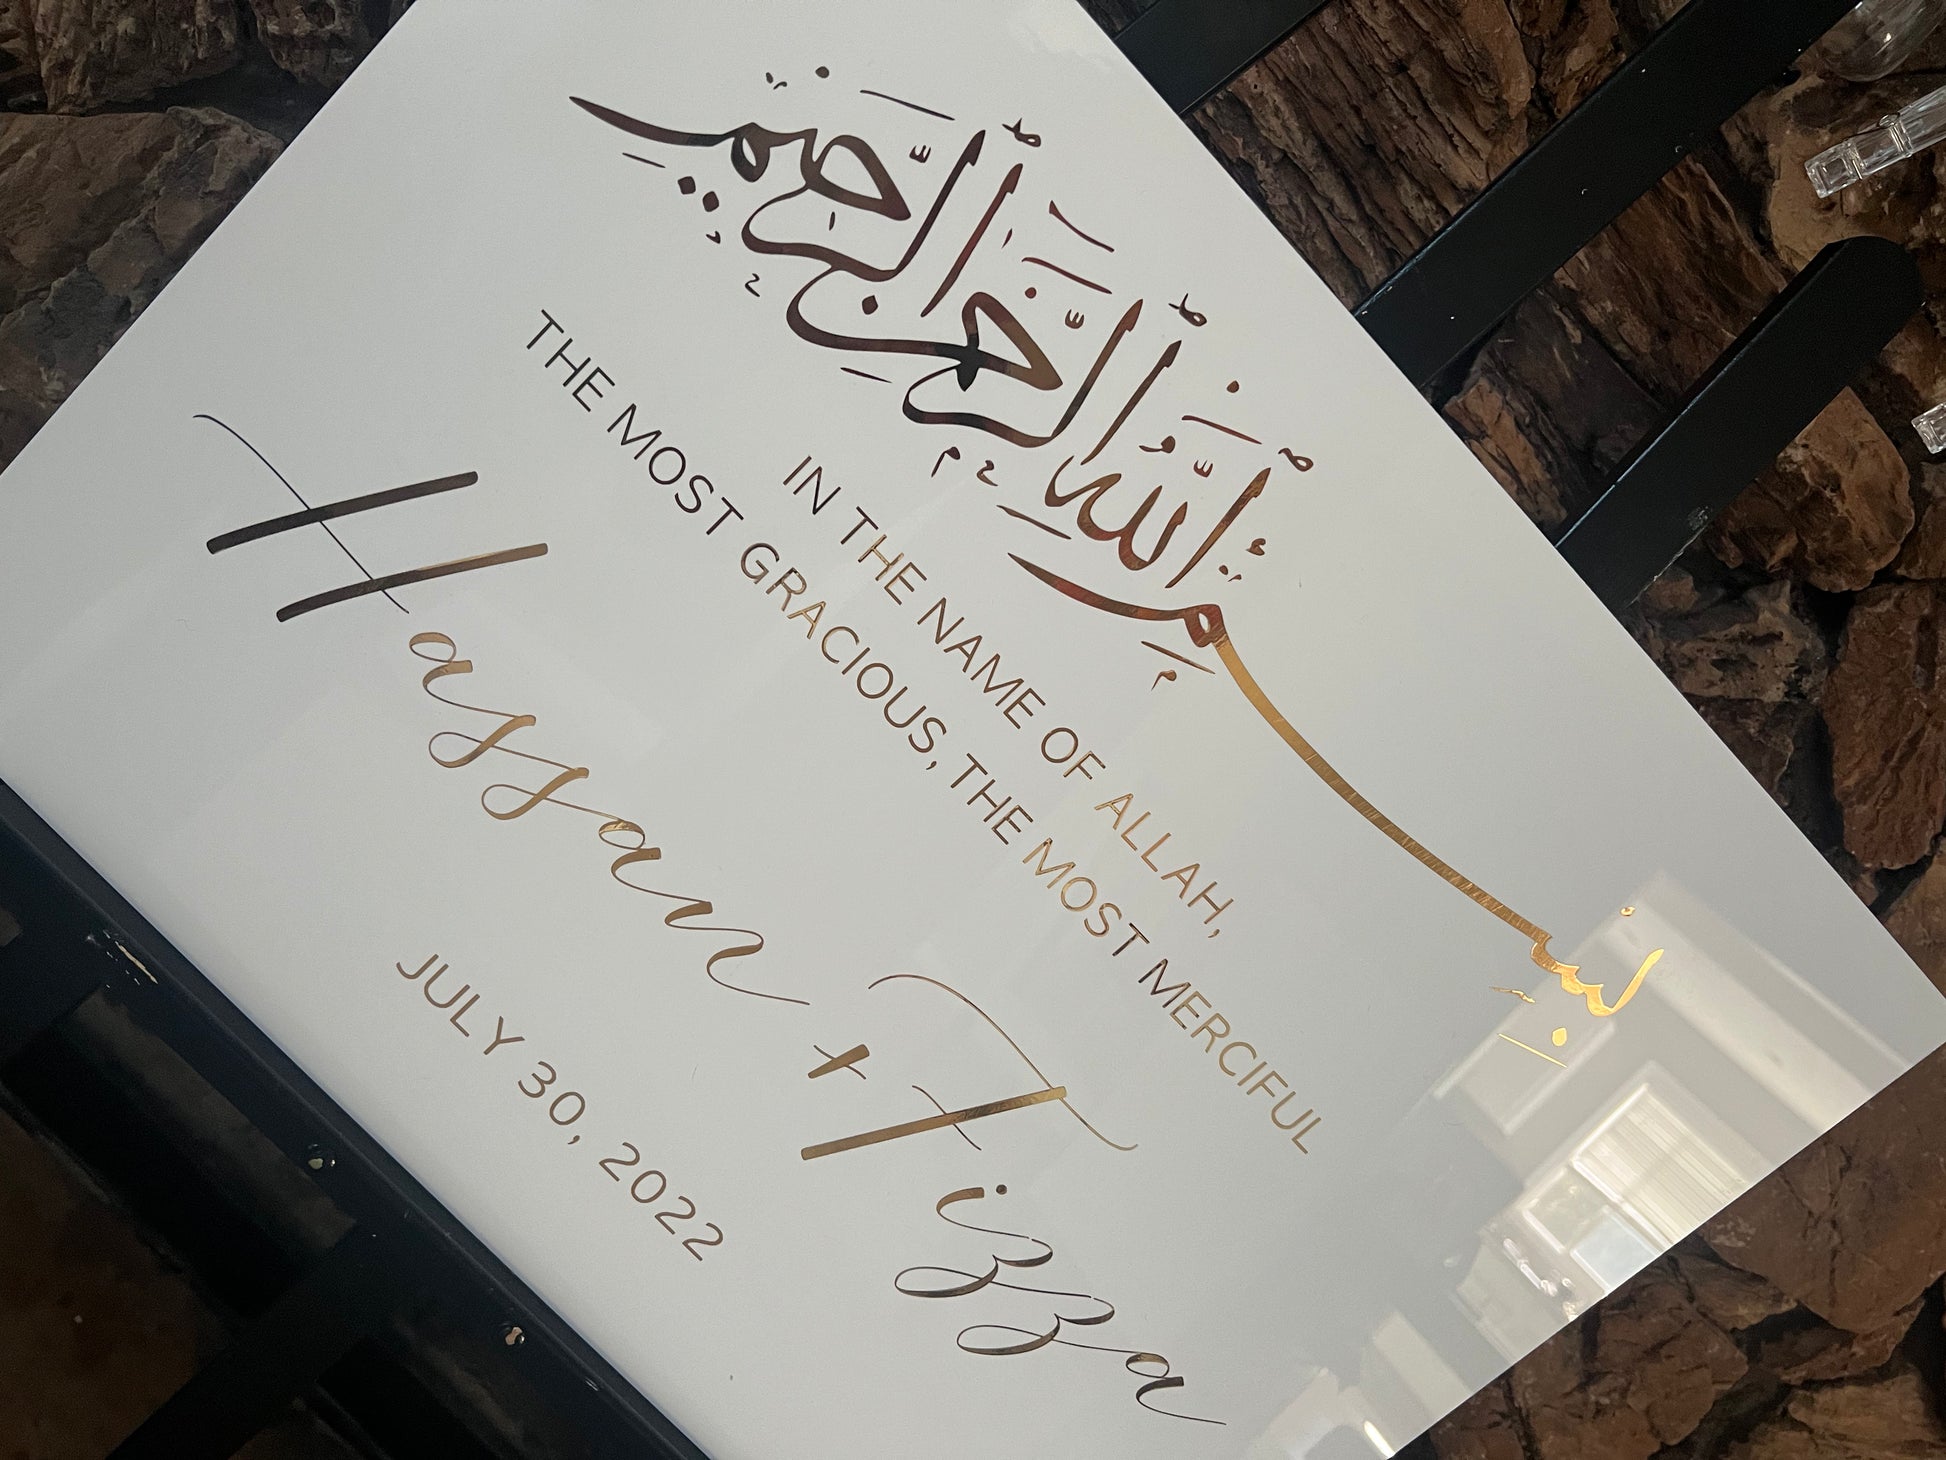 بِسْمِ ٱللَّهِ ٱلرَّحْمَٰنِ ٱلرَّحِيمِ
IN THE NAME OF ALLAH,
THE MOST GRACIOUS, THE MOST MERCIFUL
Hassan + Fizza
JULY 30, 2022